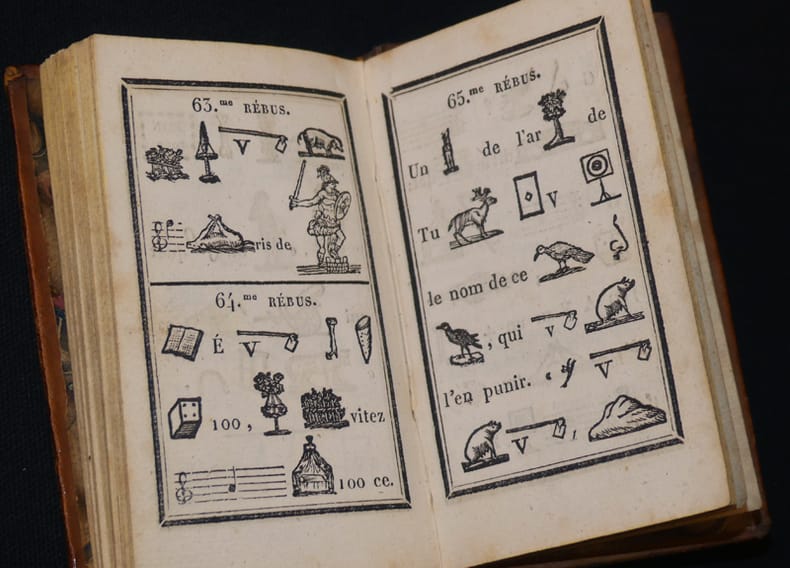 63.me RÉBUS.
V
ris de
64.me RÉBUS.
É V
100, vitez
100 ce.
65.me RÉBUS.
Un de l'ar de
Tu V
le nom de ce
, qui v
l'en punir. V
V ,